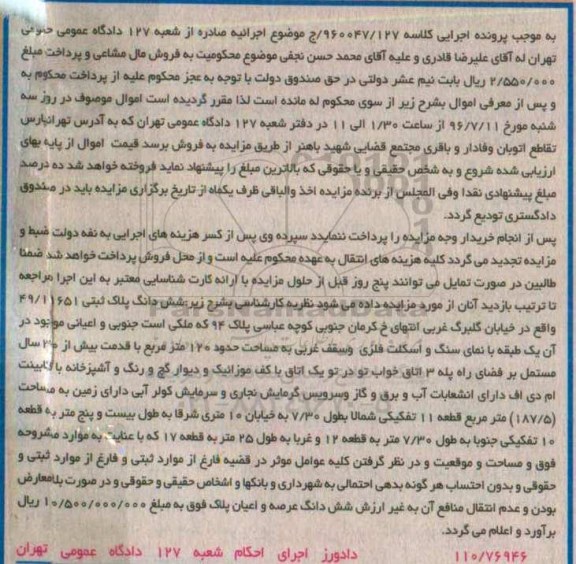 به موجب پرونده اجرایی کلاسه ۹۶۰۰۴۷/۱۲۷/ج موضوع اجرائیه صادره از شعبه ۱۲۷ دادگاه عمومی حقوقی
تهران له آقای علیرضا قادری و علیه آقای محمد حسن نجفی موضوع محکومیت به فروش مال مشاعی و پرداخت مبلغ
۲/۵۵۰/۰۰۰ ریال بابت نیم عشر دولتی در حق صندوق دولت با توجه به عجز محکوم علیه از پرداخت محکوم به
و پس از معرفی اموال بشرح زیر از سوی محکوم له مانده است لذا مقرر گردیده است اموال موصوف در روز سه
شنبه مورخ ۹۶/۷/۱۱ از ساعت ۱/۳۰ الی ۱۱ در دفتر شعبه ۱۲۷ دادگاه عمومی تهران که به آدرس تهرانپارس
تقاطع اتوبان وفادار و باقری مجتمع قضایی شهید باهنر از طریق مزایده به فروش برسد قیمت اموال از پایه بهای
ارزیابی شده شروع و به شخص حقیقی و یا حقوقی که بالاترین مبلغ را پیشنهاد نماید فروخته خواهد شد ده درصد
مبلغ پیشنهادی نقدا وفی المجلس از برنده مزایده اخذ والباقی ظرف یکماه از تاریخ برگزاری مزایده باید در صندوق
دادگستری تودیع گردد.
پس از انجام خریدار وجه مزایده را پرداخت ننمایدد سپرده وی پس از کسر هزینه های اجرایی به نفه دولت ضبط و
مزایده تجدید می گردد کلیه هزینه های انتقال به عهده محکوم علیه است و از محل فروش پرداخت خواهد شد ضمنا
طالبین در صورت تمایل می توانند پنج روز قبل از حلول مزایده با ارائه کارت شناسایی معتبر به این اجرا مراجعه
تا ترتیب بازدید آنان از مورد مزایده داده می شود نظریه کارشناسی بشرح زیر:شش دانگ پلاک ثبتی ۴۹/۱۱۶۵۱
واقع در خیابان گلبرگ غربی انتهای خ کرمان جنوبی کوچه عباسی پلاک ۹۴ که ملکی است جنوبی و اعیانی موجود در
آن یک طبقه با نمای سنگ و اسکلت فلزی وسقف غربی به مساحت حدود ۱۲۰ متر مربع با قدمت بیش از ۳۰ سال
مستمل بر فضای راه پله ۳ اتاق خواب تو در تو یک اتاق با کف موزائیک و دیوار گچ و رنگ و آشپزخانه با کابینت
ام دی اف دارای انشعابات آب و برق و گاز وسرویس گرمایش نجاری و سرمایش کولر آبی دارای زمین به مساحت
(۱۸۷/۵) متر مربع قطعه ۱۱ تفکیکی شمالا بطول ۷/۳۰ به خیابان ۱۰ متری شرقا به طول بیست و پنج متر به قطعه
۱۰ تفکیکی جنوبا به طول ۷/۳۰ متر به قطعه ۱۲ و غربا به طول ۲۵ متر به قطعه ۱۷ که با عنایت به موارد مشروحه
فوق و مساحت و موقعیت و در نظر گرفتن کلیه عوامل موثر در قضیه فارغ از موارد ثبتی و فارغ از موارد ثبتی و
حقوقی و بدون احتساب هر گونه بدهی احتمالی به شهرداری و بانکها و اشخاص حقیقی و حقوقی و در صورت بلامعارض
بودن و عدم انتقال منافع آن به غیر ارزش شش دانگ عرصه و اعیان پلاک فوق به مبلغ ۱۰/۵۰۰/۰۰۰/۰۰۰ ریال
برآورد و اعلام می گردد.
۱۱۰/۷۶۹۴۶ دادورز اجرای احکام شعبه ۱۲۷ دادگاه عمومی تهران